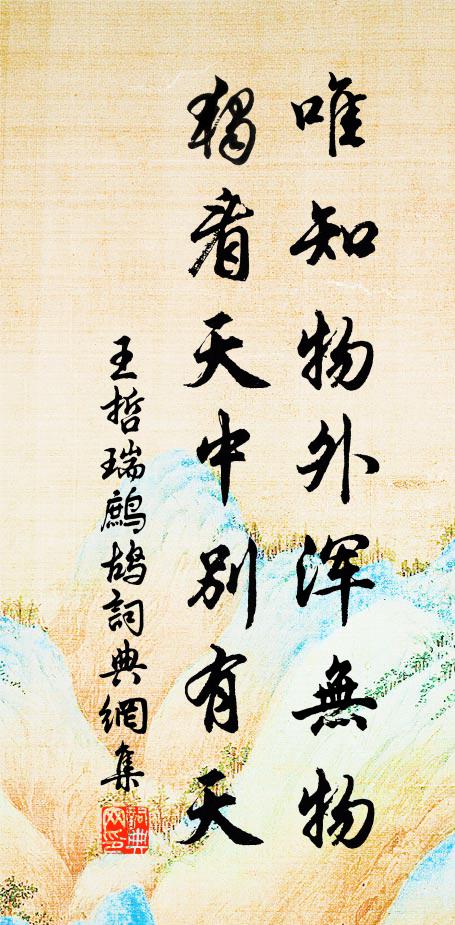 唯知物外浑無物
獨看天中别有天
王哲瑞鷓鴣詞典網集
詞典网印